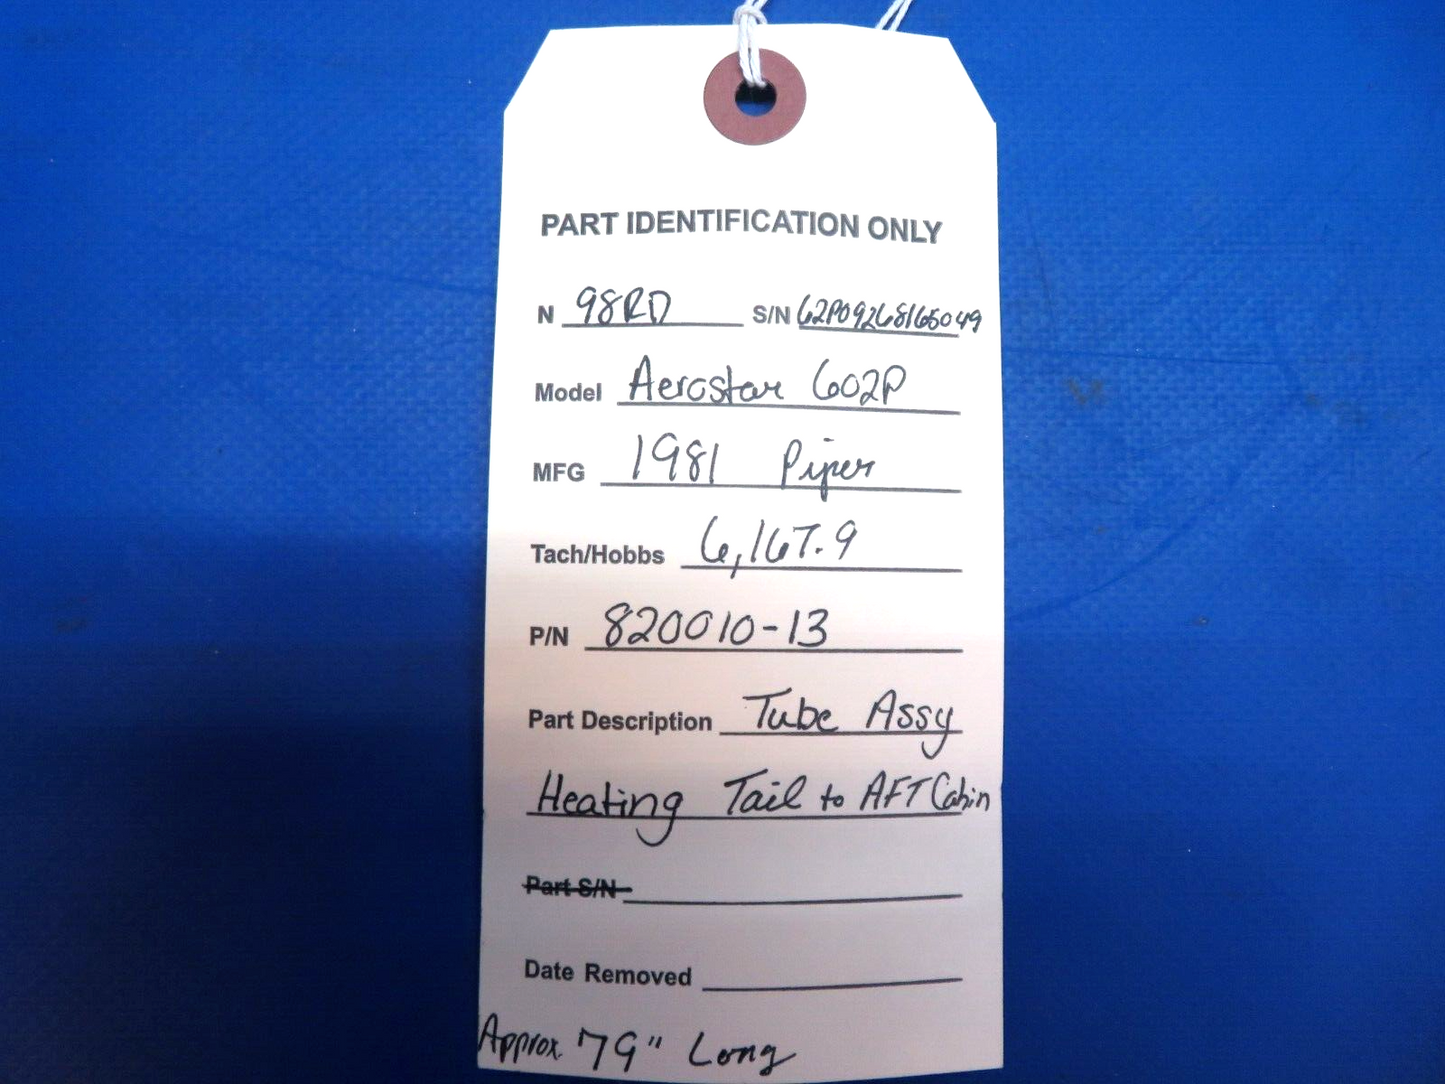 PART IDENTIFICATION ONLY
N 98RD S/N 62P09268165049
Model Aerostar 602P
MFG 1981 Piper
Tach/Hobbs 6,167.9
P/N 820010-13
Part Description Tube Assy
Heating Tail to AFT Cabin
Part S/N
Date Removed
Approx. 79" Long